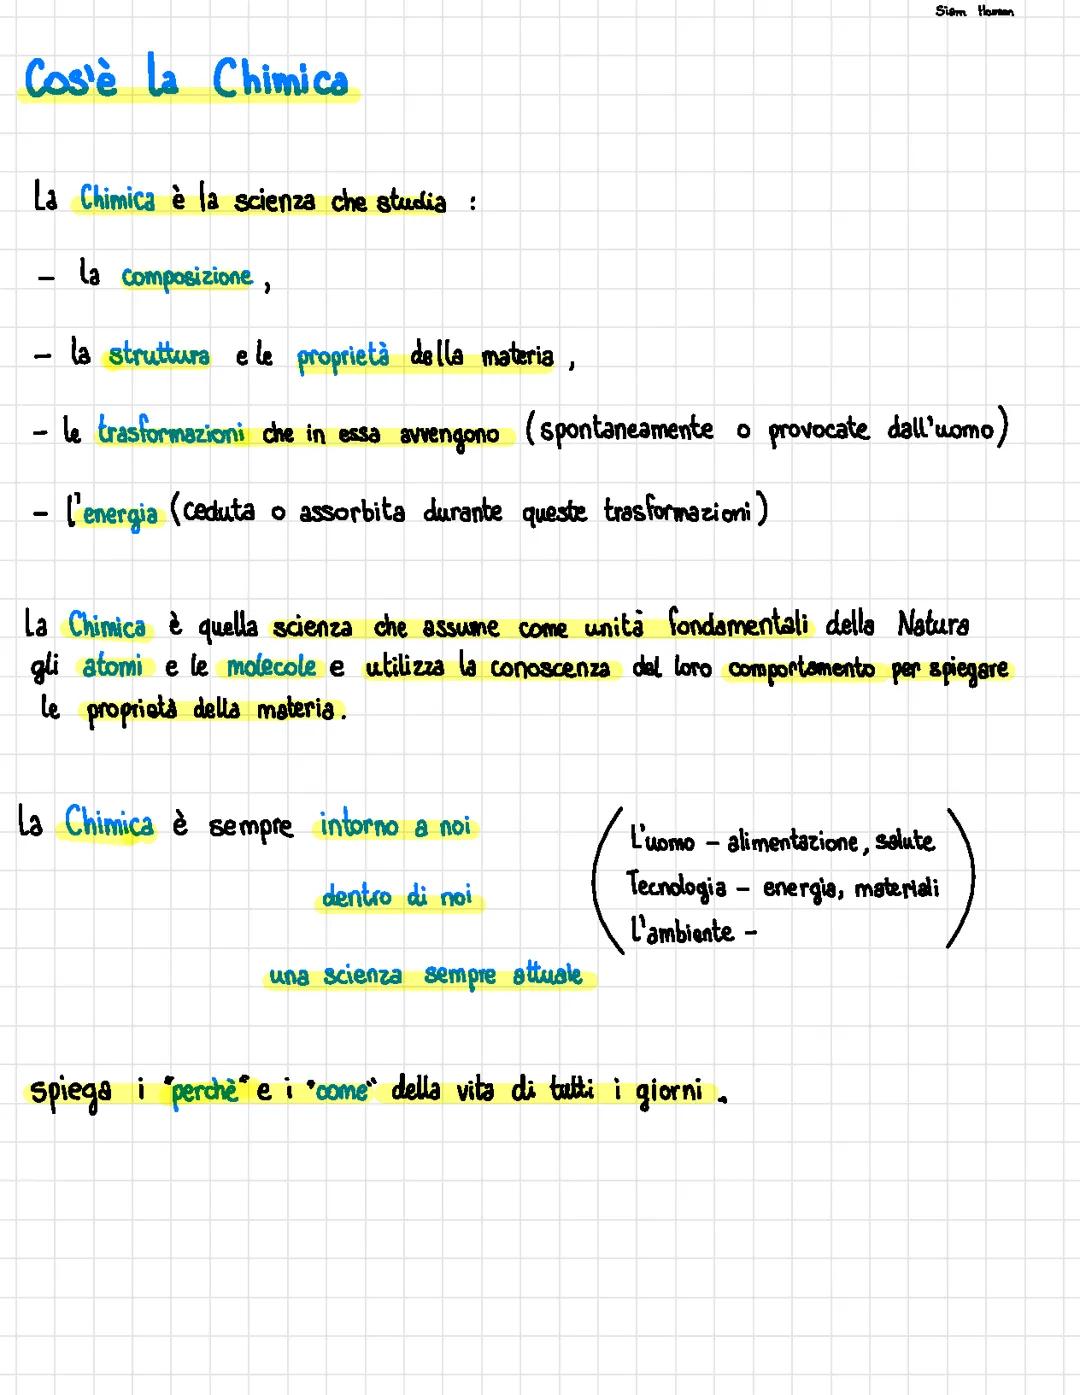 Siam
Cos'è la Chimica
La Chimica è la scienza che studia :
- la composizione ,
- la struttura e le proprietà della materia ,
- le trasformazioni che in essa avvengono (spontaneamente o provocate dall'uomo)
- l'energia (ceduta o assorbita durante queste trasformazioni)
La Chimica è quella scienza che assume come unità fondamentali della Natura
gli atomi e le molecole e utilizza la conoscenza del loro comportamento per spiegare
le proprietà della materia.
La Chimica è sempre intorno a noi
dentro di noi
una scienza sempre attuale
L'uomo - alimentazione, salute
Tecnologia - energia, materiali
L'ambiente -
spiega i "perchè" e i "come" della vita di tutti i giorni .